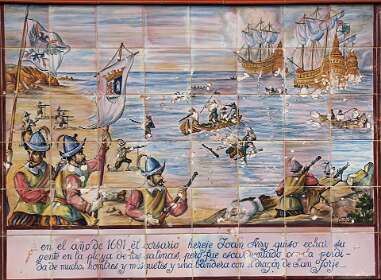 en el año de el corsario hereje Joan quiso echar su
gente en la playa de las salinas, pero fue escarmentado con la perdi-
da de muchos hombres y mosquetes y una bandera con el dragon de San Jorge.